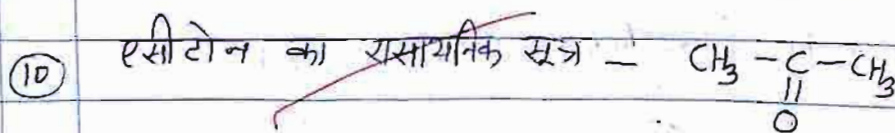 10 एसीटोन का रासायनिक सूत्र – CH3 – C – CH3
||
O